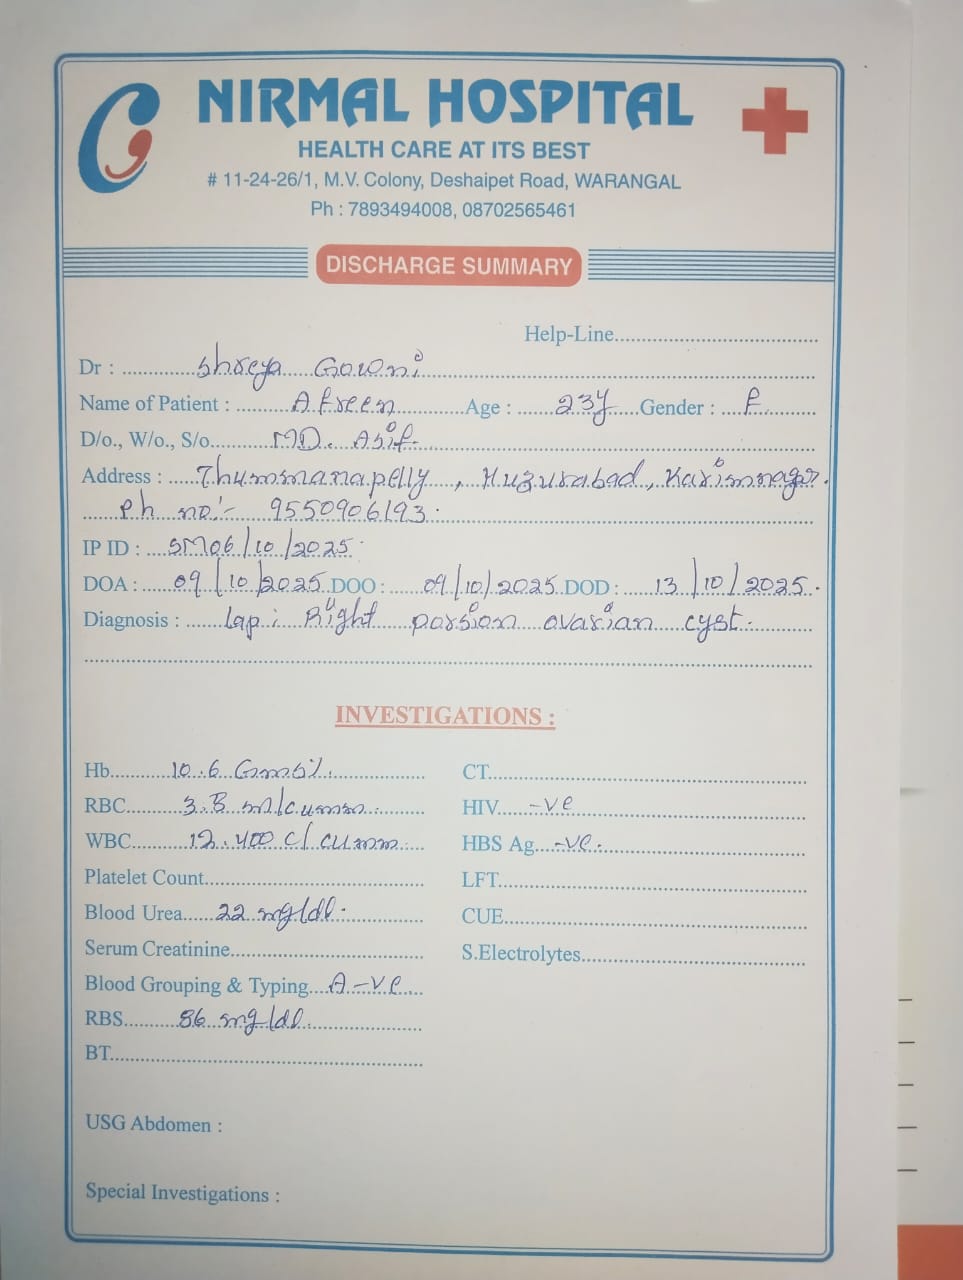 NIRMAL HOSPITAL
HEALTH CARE AT ITS BEST
# 11-24-26/1, M.V. Colony, Deshaipet Road, WARANGAL
Ph : 7893494008, 08702565461
DISCHARGE SUMMARY
Help-Line
Dr : Shreya Gowni
Name of Patient : Afreen Age : 23y Gender : F
D/o., W/o., S/o. MD. Asif.
Address : Thummanapelly, Huzurabad, Karimnagar.
Ph no:- 9550906193.
IP ID : SM06/10/2025.
DOA : 09/10/2025 DOO : 09/10/2025 DOD : 13/10/2025.
Diagnosis : Lap: Right parsion ovarian cyst.
INVESTIGATIONS :
Hb 10.6 Gms%. CT
RBC m/cumm. HIV -ve
WBC 12.400 c/cumm HBS Ag -ve.
Platelet Count LFT
Blood Urea 22 mg/dl. CUE
Serum Creatinine S.Electrolytes
Blood Grouping & Typing A-ve
RBS 86 mg/dl.
BT
USG Abdomen :
Special Investigations :